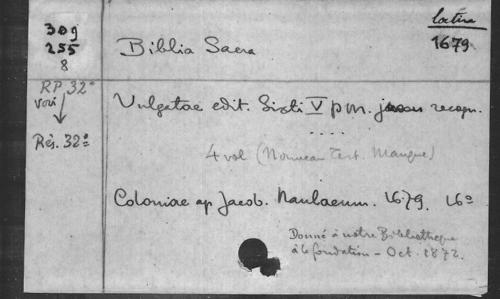 309
255
8
latin
1679
Biblia Sacra
RP 32°
voir
Rés. 32°
Vulgatae edit. Sixti V p.m. jussu recogn.
....
4 vol (Nouveau Test. Manque)
Coloniae ap Jacob. Naulaeum. 1679. 16°
Donné à notre Bibliothèque
à la fondation - Oct. 1872.